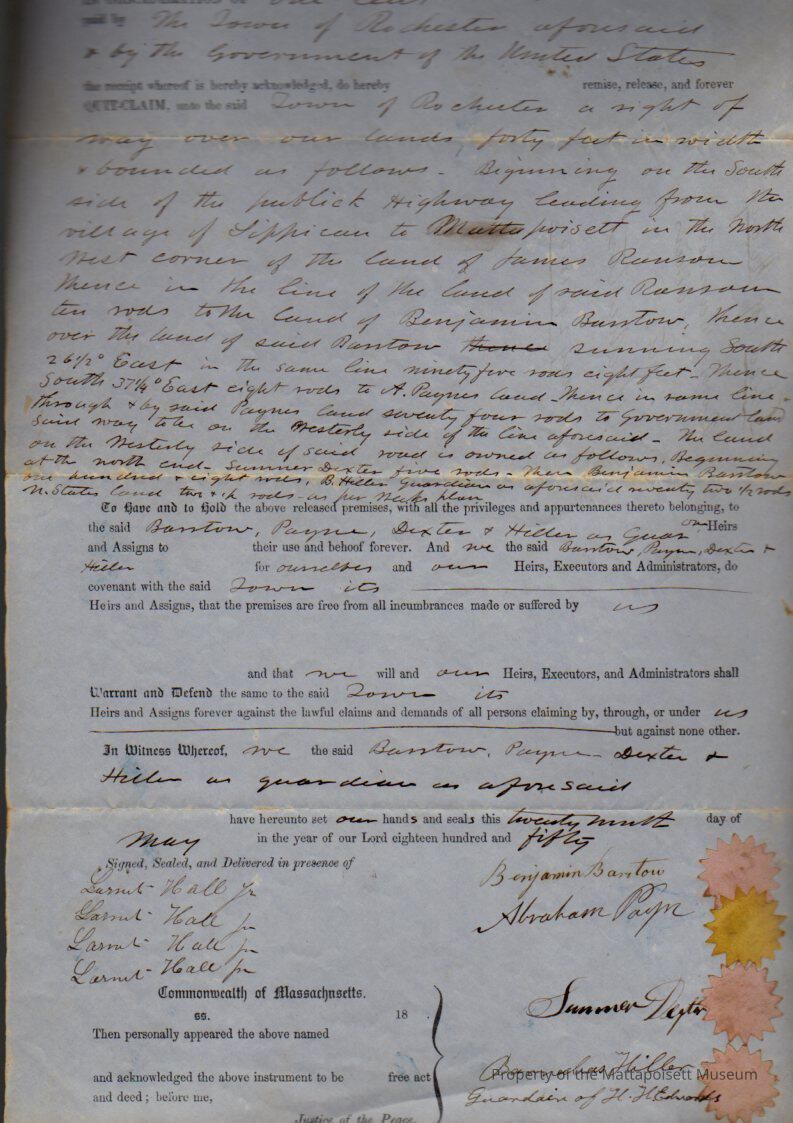 said by The Town of Rochester aforesaid
& by the Government of the United States
the receipt whereof is hereby acknowledged, do hereby remise, release, and forever
QUIT-CLAIM, unto the said Town of Rochester a right of
way over our lands, forty feet in width
& bounded as follows - Beginning on the South
side of the publick Highway leading from the
village of Sippican to Mattapoisett in the North
West corner of the land of James Ransom
thence in the line of the land of said Ransom
ten rods to the land of Benjamin Barstow, thence
over the land of said Barstow thence running South
26 1/2° East in the same line ninety five rods eight feet - thence
South 37 1/4° East eight rods to A. Paynes land - thence in same line
through & by said Paynes land twenty four rods to Government land
said way to be on the Westerly side of the line aforesaid - The land
on the Westerly side of said road is owned as follows, Beginning
at the north end - Sumner Dexter five rods - then Benjamin Barstow
one hundred & eight rods, B. Hiller Guardian as aforesaid twenty two 1/2 rods
U. States land two & 1/2 rods - as per plan
To Have and to Hold the above released premises, with all the privileges and appurtenances thereto belonging, to
the said Barstow, Payne, Dexter & Hiller as Guar our Heirs
and Assigns to their use and behoof forever. And we the said Barstow, Payne, Dexter &
Hiller for ourselves and our Heirs, Executors and Administrators, do
covenant with the said Town its
Heirs and Assigns, that the premises are free from all incumbrances made or suffered by us
and that we will and our Heirs, Executors, and Administrators shall
Warrant and Defend the same to the said Town its
Heirs and Assigns forever against the lawful claims and demands of all persons claiming by, through, or under us
but against none other.
In Witness Whereof, we the said Barstow, Payne Dexter &
Hiller as guardian as aforesaid
have hereunto set our hands and seals this twenty ninth day of
May in the year of our Lord eighteen hundred and fifty
Signed, Sealed, and Delivered in presence of
Larnet Hall Jr
Larnet Hall Jr
Larnet Hall Jr
Larnet Hall Jr
Benjamin Barstow
Abraham Payn
Sumner Dexter
Barnabas Hiller
Guardain of H. H Edwards
Commonwealth of Massachusetts.
ss. 18
Then personally appeared the above named
and acknowledged the above instrument to be free act
and deed; before me,
Justice of the Peace.
Property of the Mattapoisett Museum